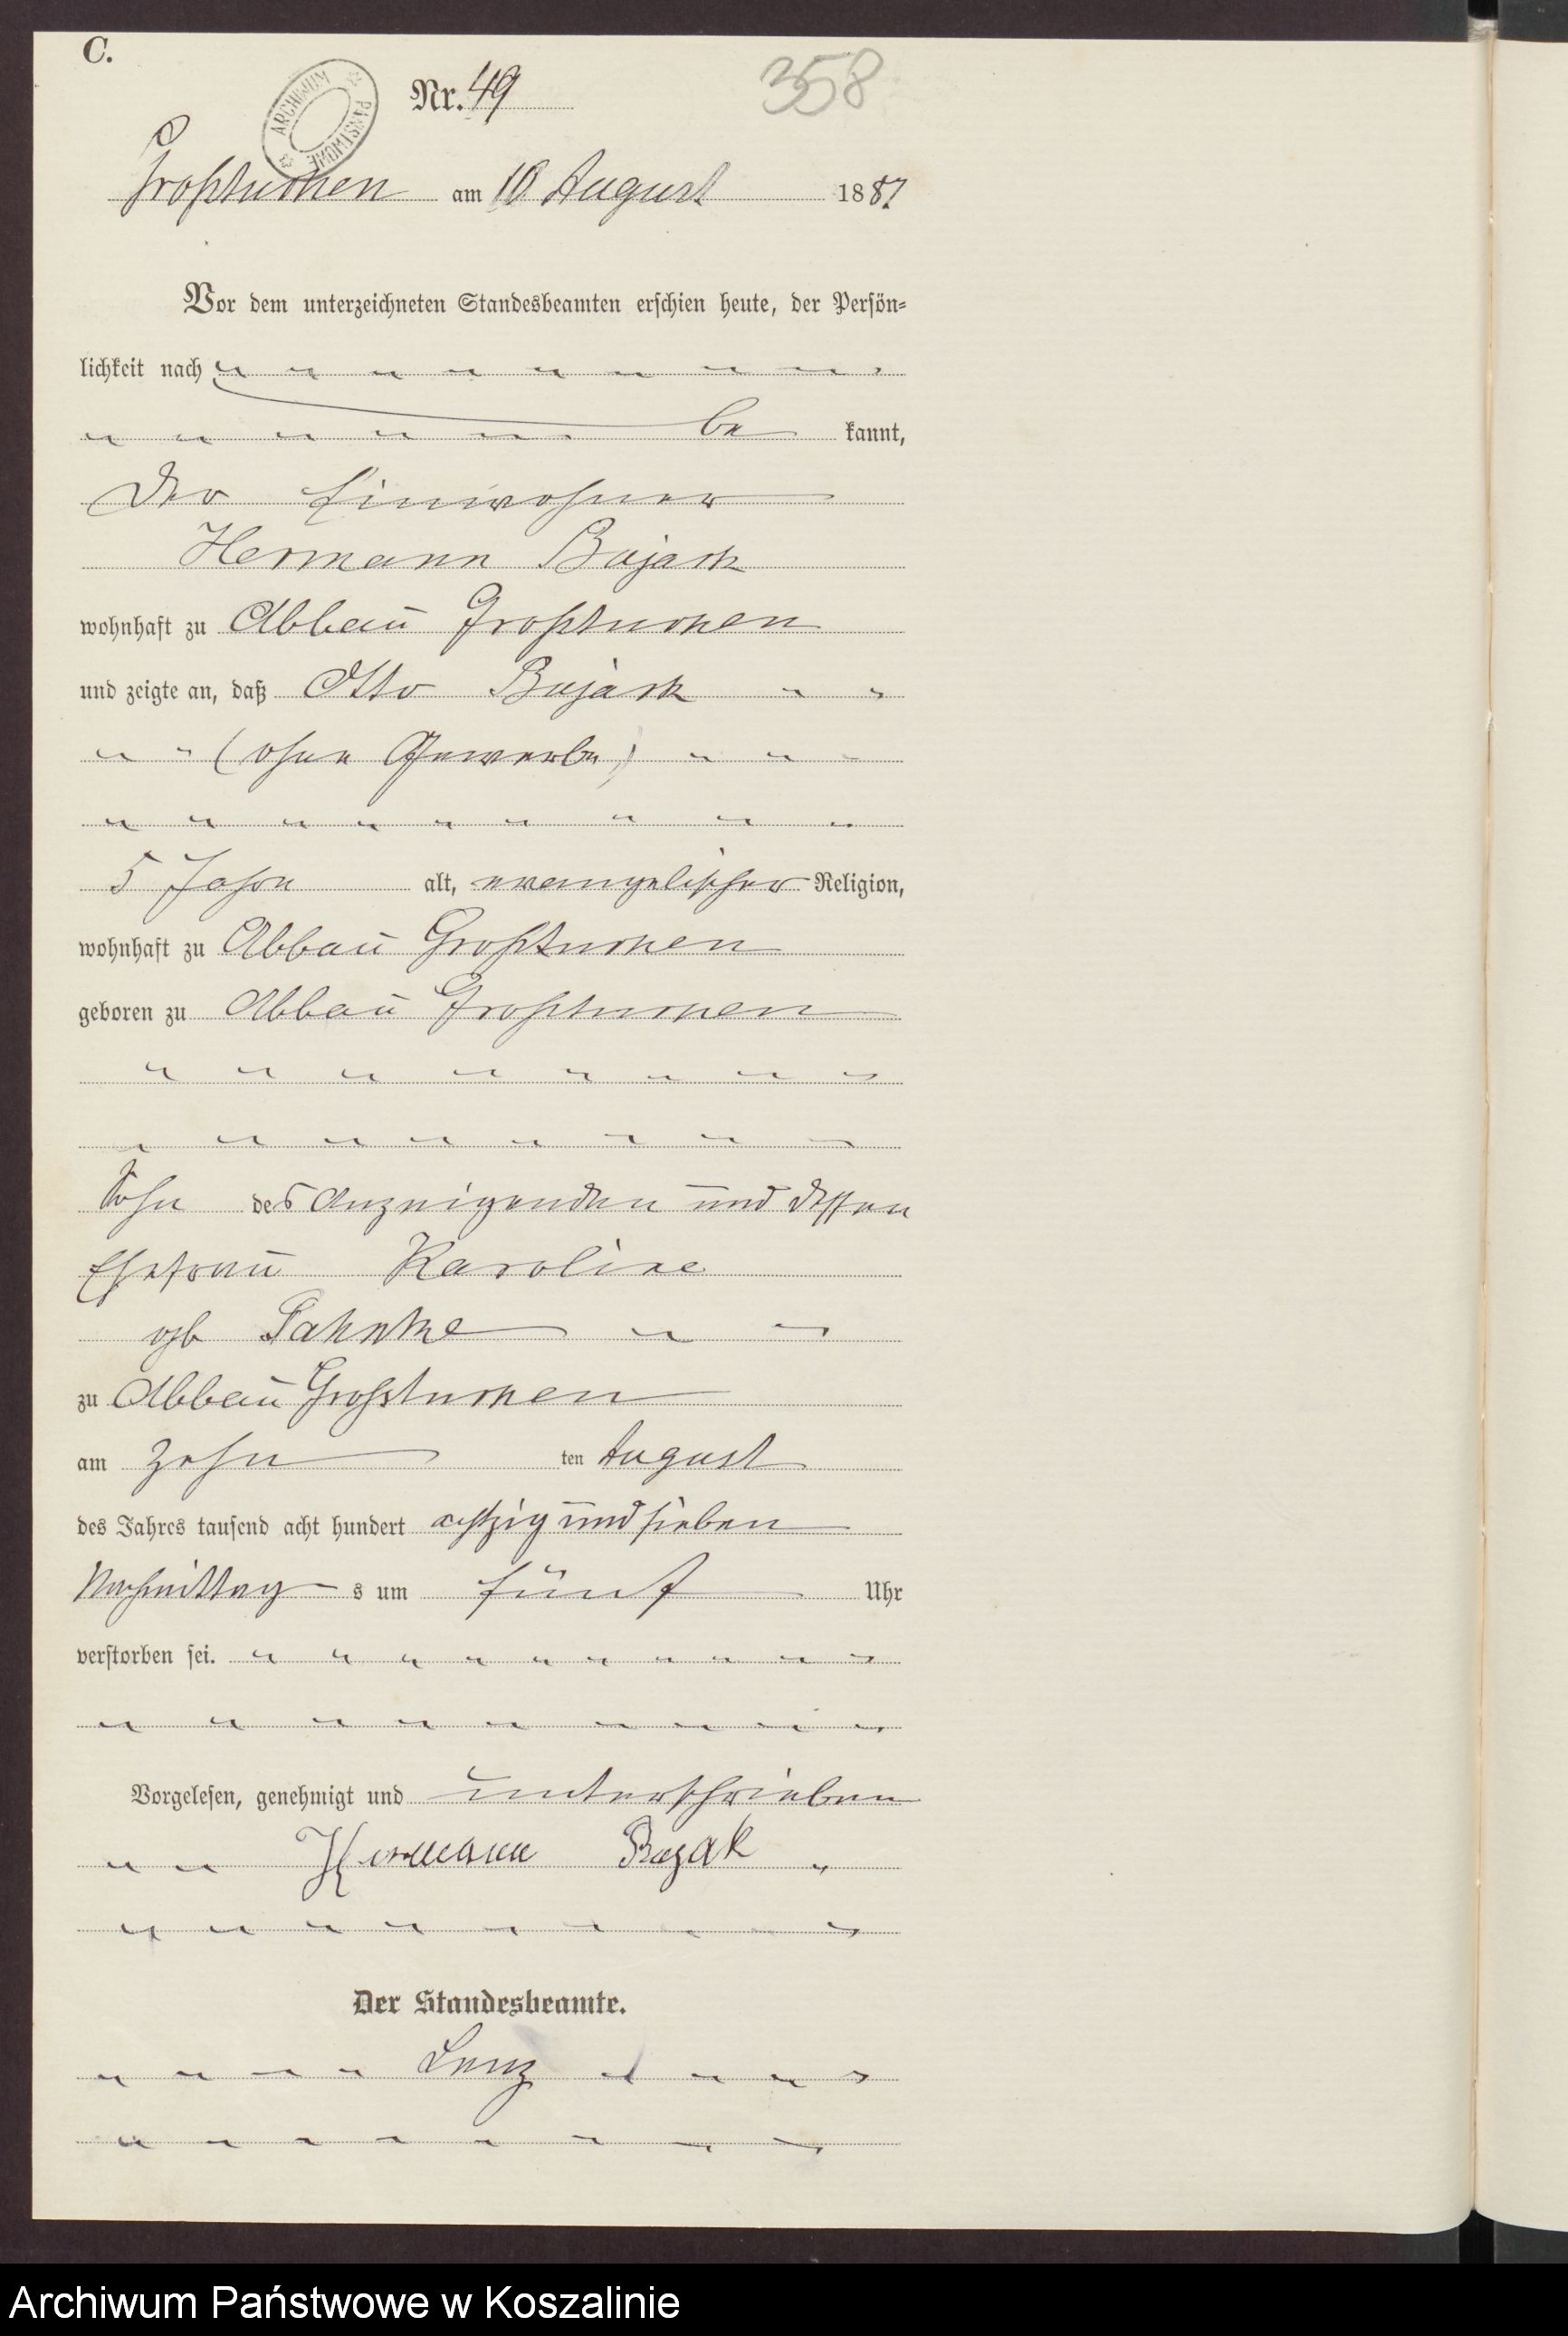 C.
Nr. 49
358
ARCHIWUM PAŃSTWOWE
Großtuchen am 10 August 1887
Vor dem unterzeichneten Standesbeamten erschien heute, der Persön=
lichkeit nach
be kannt,
Der Einwohner
Hermann Bujack
wohnhaft zu Abbau Großtuchen
und zeigte an, daß Otto Bujack
(ohne Gewerbe)
5 Jahre alt, evangelischer Religion,
wohnhaft zu Abbau Großtuchen
geboren zu Abbau Großtuchen
Sohn des Anzeigenden und dessen
Ehefrau Karoline
geb
zu Abbau Großtuchen
am zehn ten August
des Jahres tausend acht hundert achtzig und sieben
Nachmittag s um fünf Uhr
verstorben sei.
Vorgelesen, genehmigt und unterschrieben
Hermann
Der Standesbeamte.
Lenz
Archiwum Państwowe w Koszalinie